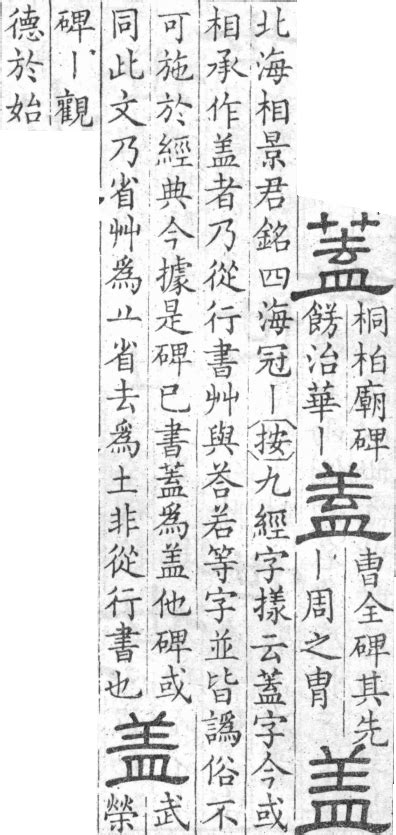 蓋
桐柏廟碑
餝治華丨
蓋
曹全碑其先
丨周之胄
盖
北海相景君銘四海冠丨按九經字樣云蓋字今或
相承作盖者乃從行書艸與荅若等字並皆譌俗不
可施於經典今據是碑已書蓋爲盖他碑或
同此文乃省艸爲䒑省去爲土非從行書也
盖
武
榮
碑丨觀
德於始